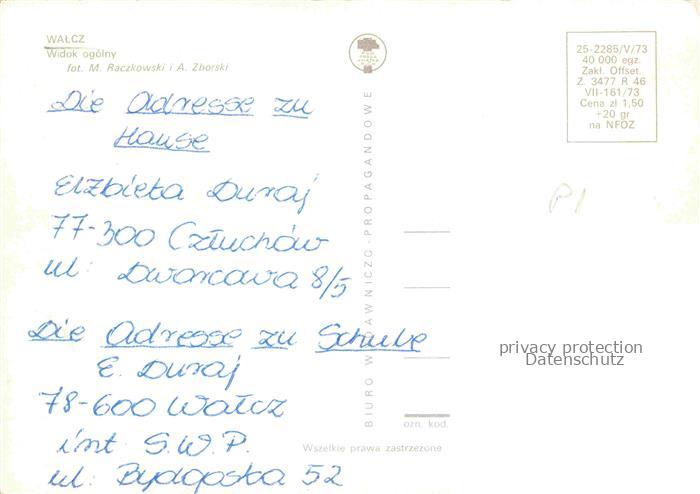 WAŁCZ
Widok ogólny
fot. M. Raczkowski i A. Zborski
Die Adresse zu
Hause
Elżbieta Duraj
77-300 Człuchów
ul. Dworcowa 8/5
Die Adresse zu Schule
E. Duraj
78-600 Wałcz
int S.W.P.
ul: Bydgoska 52
BIURO WYDAWNICZO-PROPAGANDOWE
25-2285/V/73
40 000 egz.
Zakł. Offset.
Z. 3477 R 46
VII-161/73
Cena zł 1,50
+20 gr
na NFOZ
P1
privacy protection
Datenschutz
ozn. kod.
Wszelkie prawa zastrzeżone